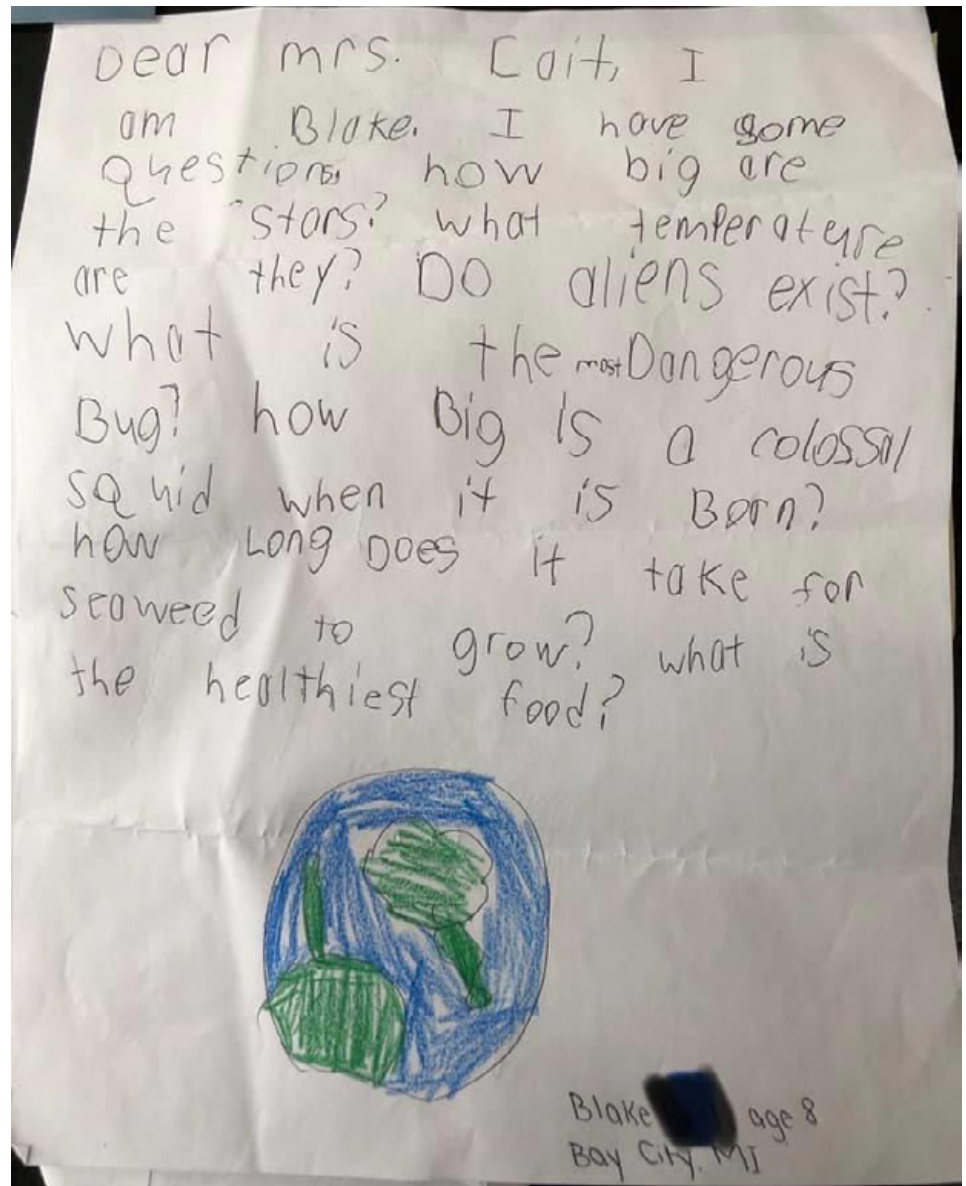 Dear mrs. Cait, I
am Blake. I have some
questions, how big are
the stars? what temperature
are they? Do aliens exist?
what is the most Dangerous
Bug? how Big is a colossal
squid when it is Born?
how Long Does it take for
seaweed to grow? what is
the healthiest food?
Blake age 8
Bay City, MI